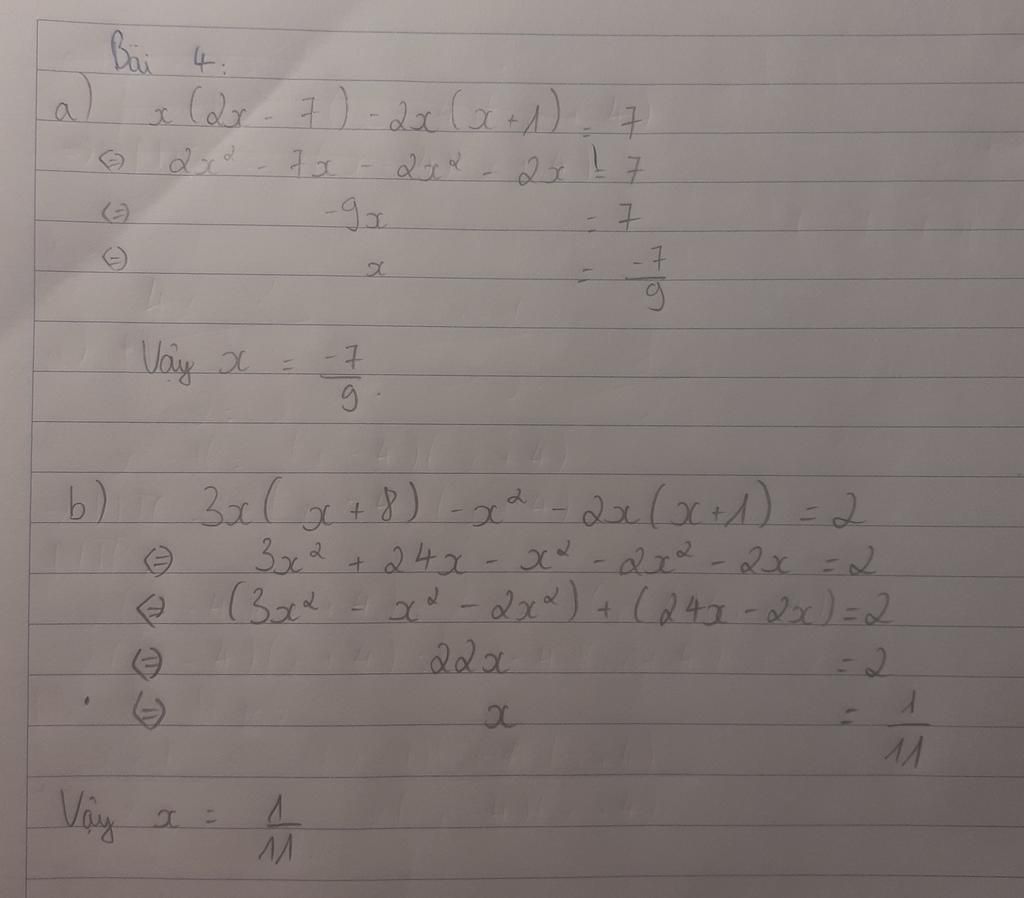 Bài 4:
a) x(2x - 7) - 2x(x+1) = 7
⇔ 2x² - 7x - 2x² - 2x = 7
⇔ -9x = 7
⇔ x = -7/9
Vậy x = -7/9.
b) 3x(x+8) - x² - 2x(x+1) = 2
⇔ 3x² + 24x - x² - 2x² - 2x = 2
⇔ (3x² - x² - 2x²) + (24x - 2x) = 2
⇔ 22x = 2
⇔ x = 1/11
Vậy x = 1/11